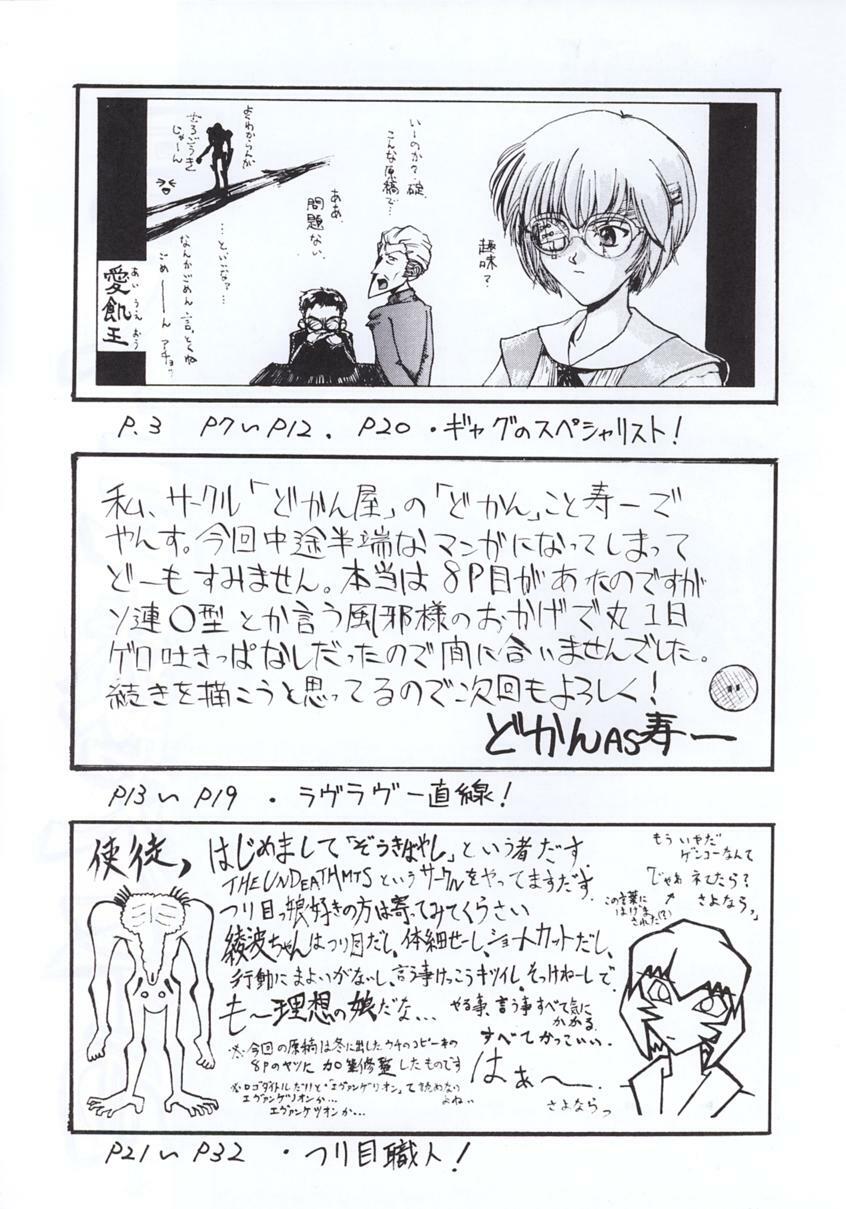 いーのか？碇、
こんな原稿で…
ああ、
問題ない。
…といいな？…
なんかごめん言っとくね
ごめーーん アチョッ
よくわからんが
じゃーん
趣味？
あいうえおう
愛飢王
P.3 P7〜P12. P20・ギャグのスペシャリスト！
私、サークル「どかん屋」の「どかん」こと寿一で
やんす。今回中途半端なマンガになってしまって
どーもすみません。本当は8P目があったのですが
ソ連〇型とか言う風邪様のおかげで丸1日
ゲロ吐きっぱなしだったので間に合いませんでした。
続きを描こうと思ってるので次回もよろしく！
どかんAS寿一
P13〜P19・ラヴラヴ一直線！
使徒、
はじめまして「ぞうきばやし」という者だす。
THE UNDEATHMTSというサークルをやってますだす。
つり目っ娘好きの方は寄ってみてくらさい
綾波ちゃんはつり目だし、体細せーし、ショートカットだし、
行動にまよいがないし、言う事けっこうキツイし、そっけねーしで、
も〜理想の娘だな…
やる事、言う事すべて気に
かかる。
すべてかっこいい。
はぁ〜
さよならっ
※今回の原稿は冬に出したウチのコピー本の
8Pのヤツに加筆修整したものです
※ロゴタイトルだけど・"エヴァンゲリオン"て読めない
よねぃ
エヴァンゲリオンか…
エヴァンケツオンか…
もういやだ
ゲンコーなんて
じゃあネてたら？
さよならっ
この言葉に
はげま
された(?)
P21〜P32・つり目職人！